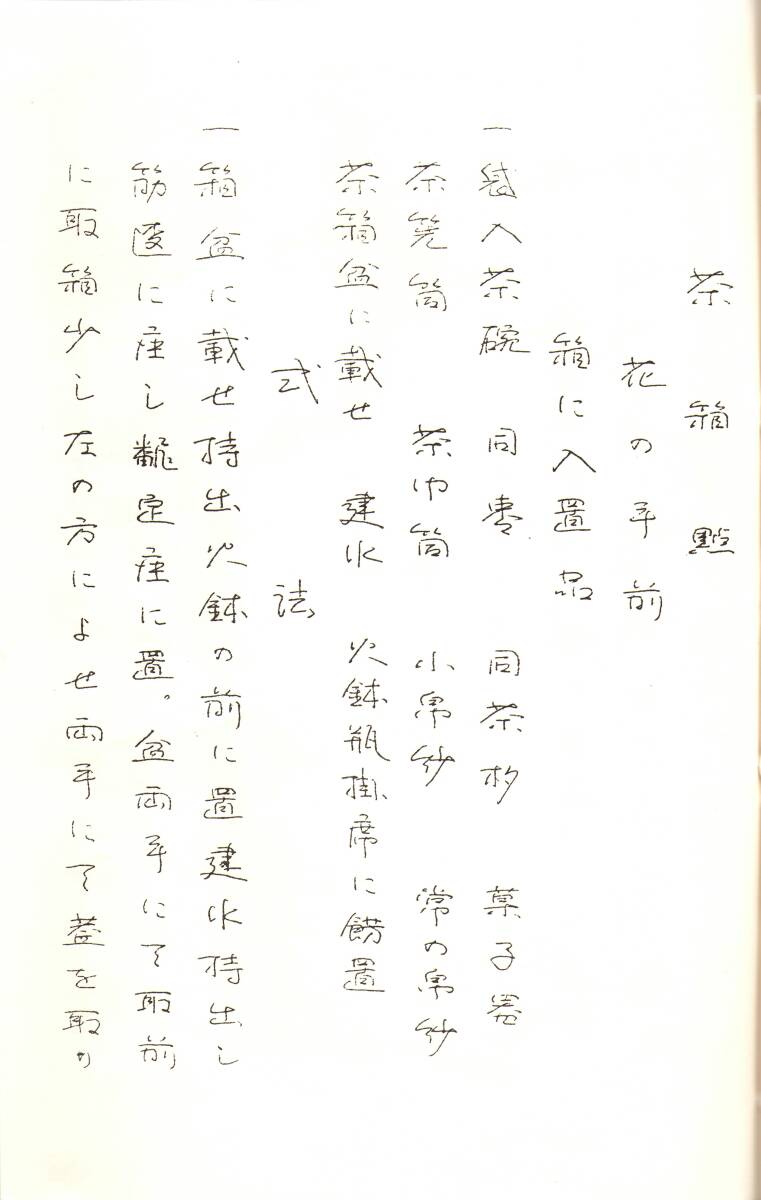 茶箱點
花の手前
箱に入置品
一 袋入茶碗 同棗 同茶杓 菓子器
茶筅筒 茶巾筒 小帛紗 常の帛紗
茶箱盆に載せ 建水 火鉢瓶掛席に餝置
式法
一 箱盆に載せ持出火鉢の前に置建水持出し
筋違に座し 定座に置。盆両手にて取前
に取箱少し左の方によせ両手にて蓋を取り